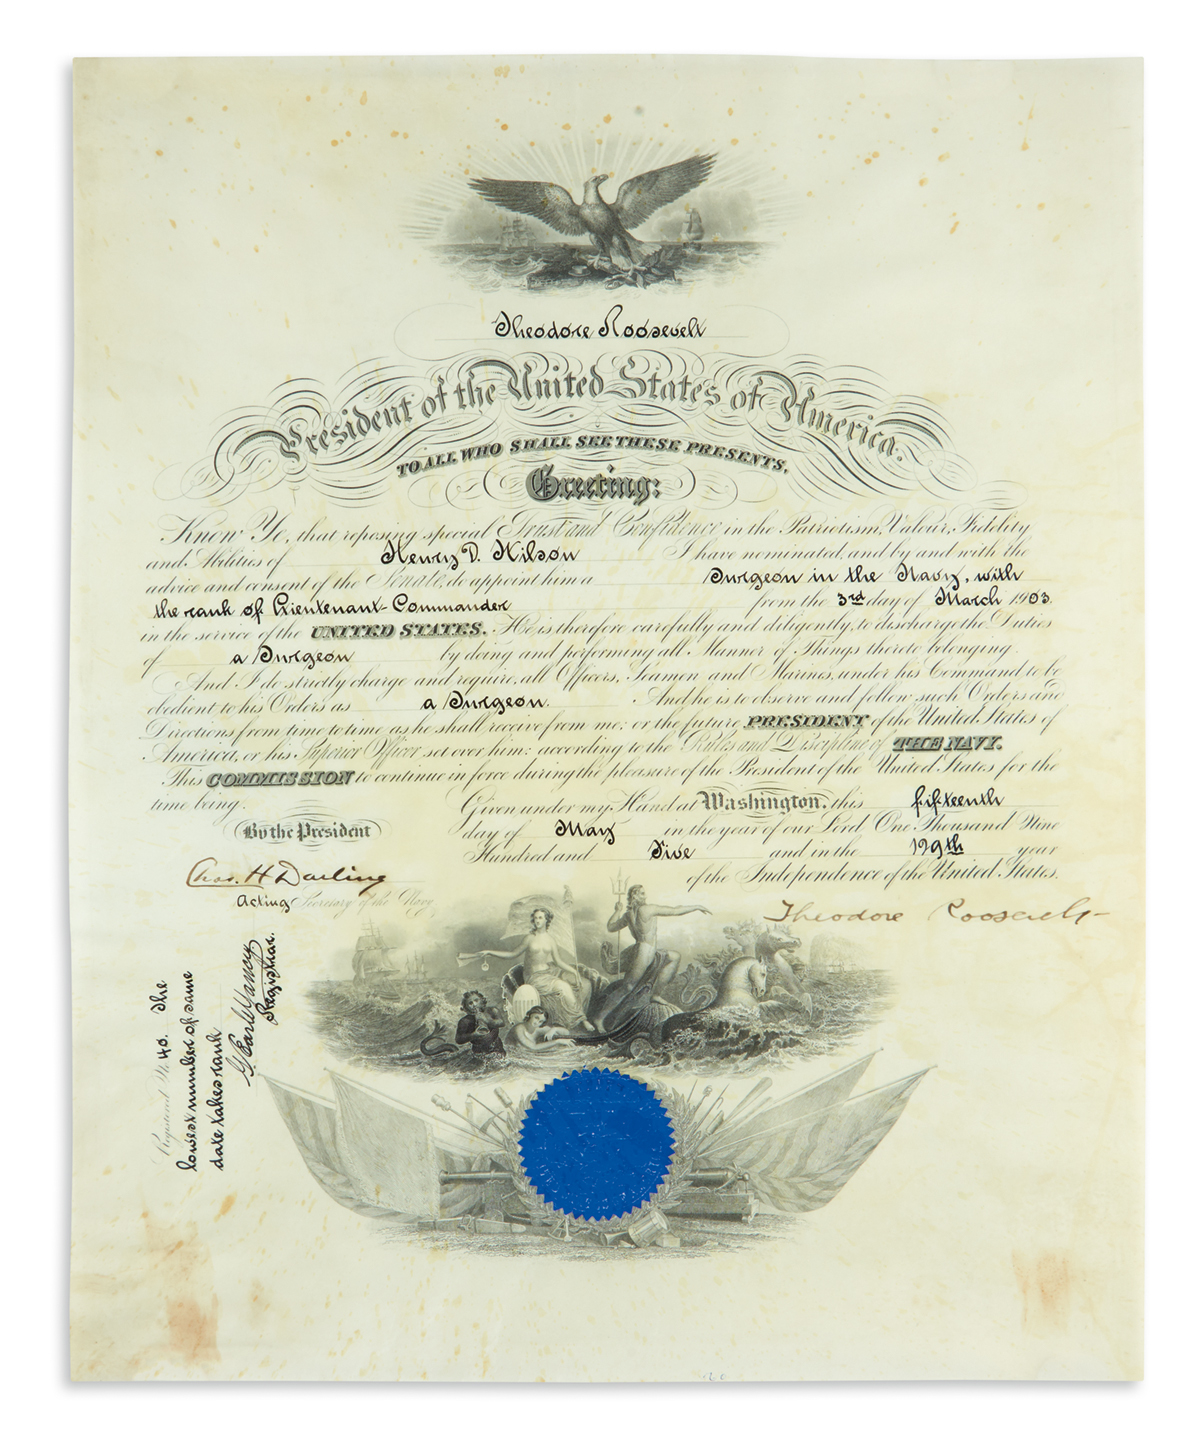 Theodore Roosevelt
President of the United States of America.
TO ALL WHO SHALL SEE THESE PRESENTS,
Greeting:
Know Ye, that reposing special Trust and Confidence in the Patriotism, Valour, Fidelity
and Abilities of Henry D. Wilson I have nominated, and by and with the
advice and consent of the Senate, do appoint him a Surgeon in the Navy, with
the rank of Lieutenant-Commander from the 3rd day of March 1903.
in the service of the UNITED STATES. He is therefore carefully and diligently, to discharge the Duties
of a Surgeon by doing and performing all Manner of Things thereto belonging.
And I do strictly charge and require, all Officers, Seamen and Marines, under his Command to be
obedient to his Orders as a Surgeon. And he is to observe and follow, such Orders and
Directions from time to time as he shall receive from me; or the future PRESIDENT of the United States of
America, or his Superior Officer set over him; according to the Rules and Discipline of THE NAVY.
This COMMISSION to continue in force during the pleasure of the President of the United States for the
time being.
Given under my Hand at Washington, this fifteenth
day of May in the year of our Lord, One Thousand Nine
Hundred and Five and in the 129th year
of the Independence of the United States.
By the President
Chas. H Darling
Acting Secretary of the Navy.
Theodore Roosevelt
Registered No 40. The
lowest number of same
date takes rank
G. Earl Yancy
Registrar.